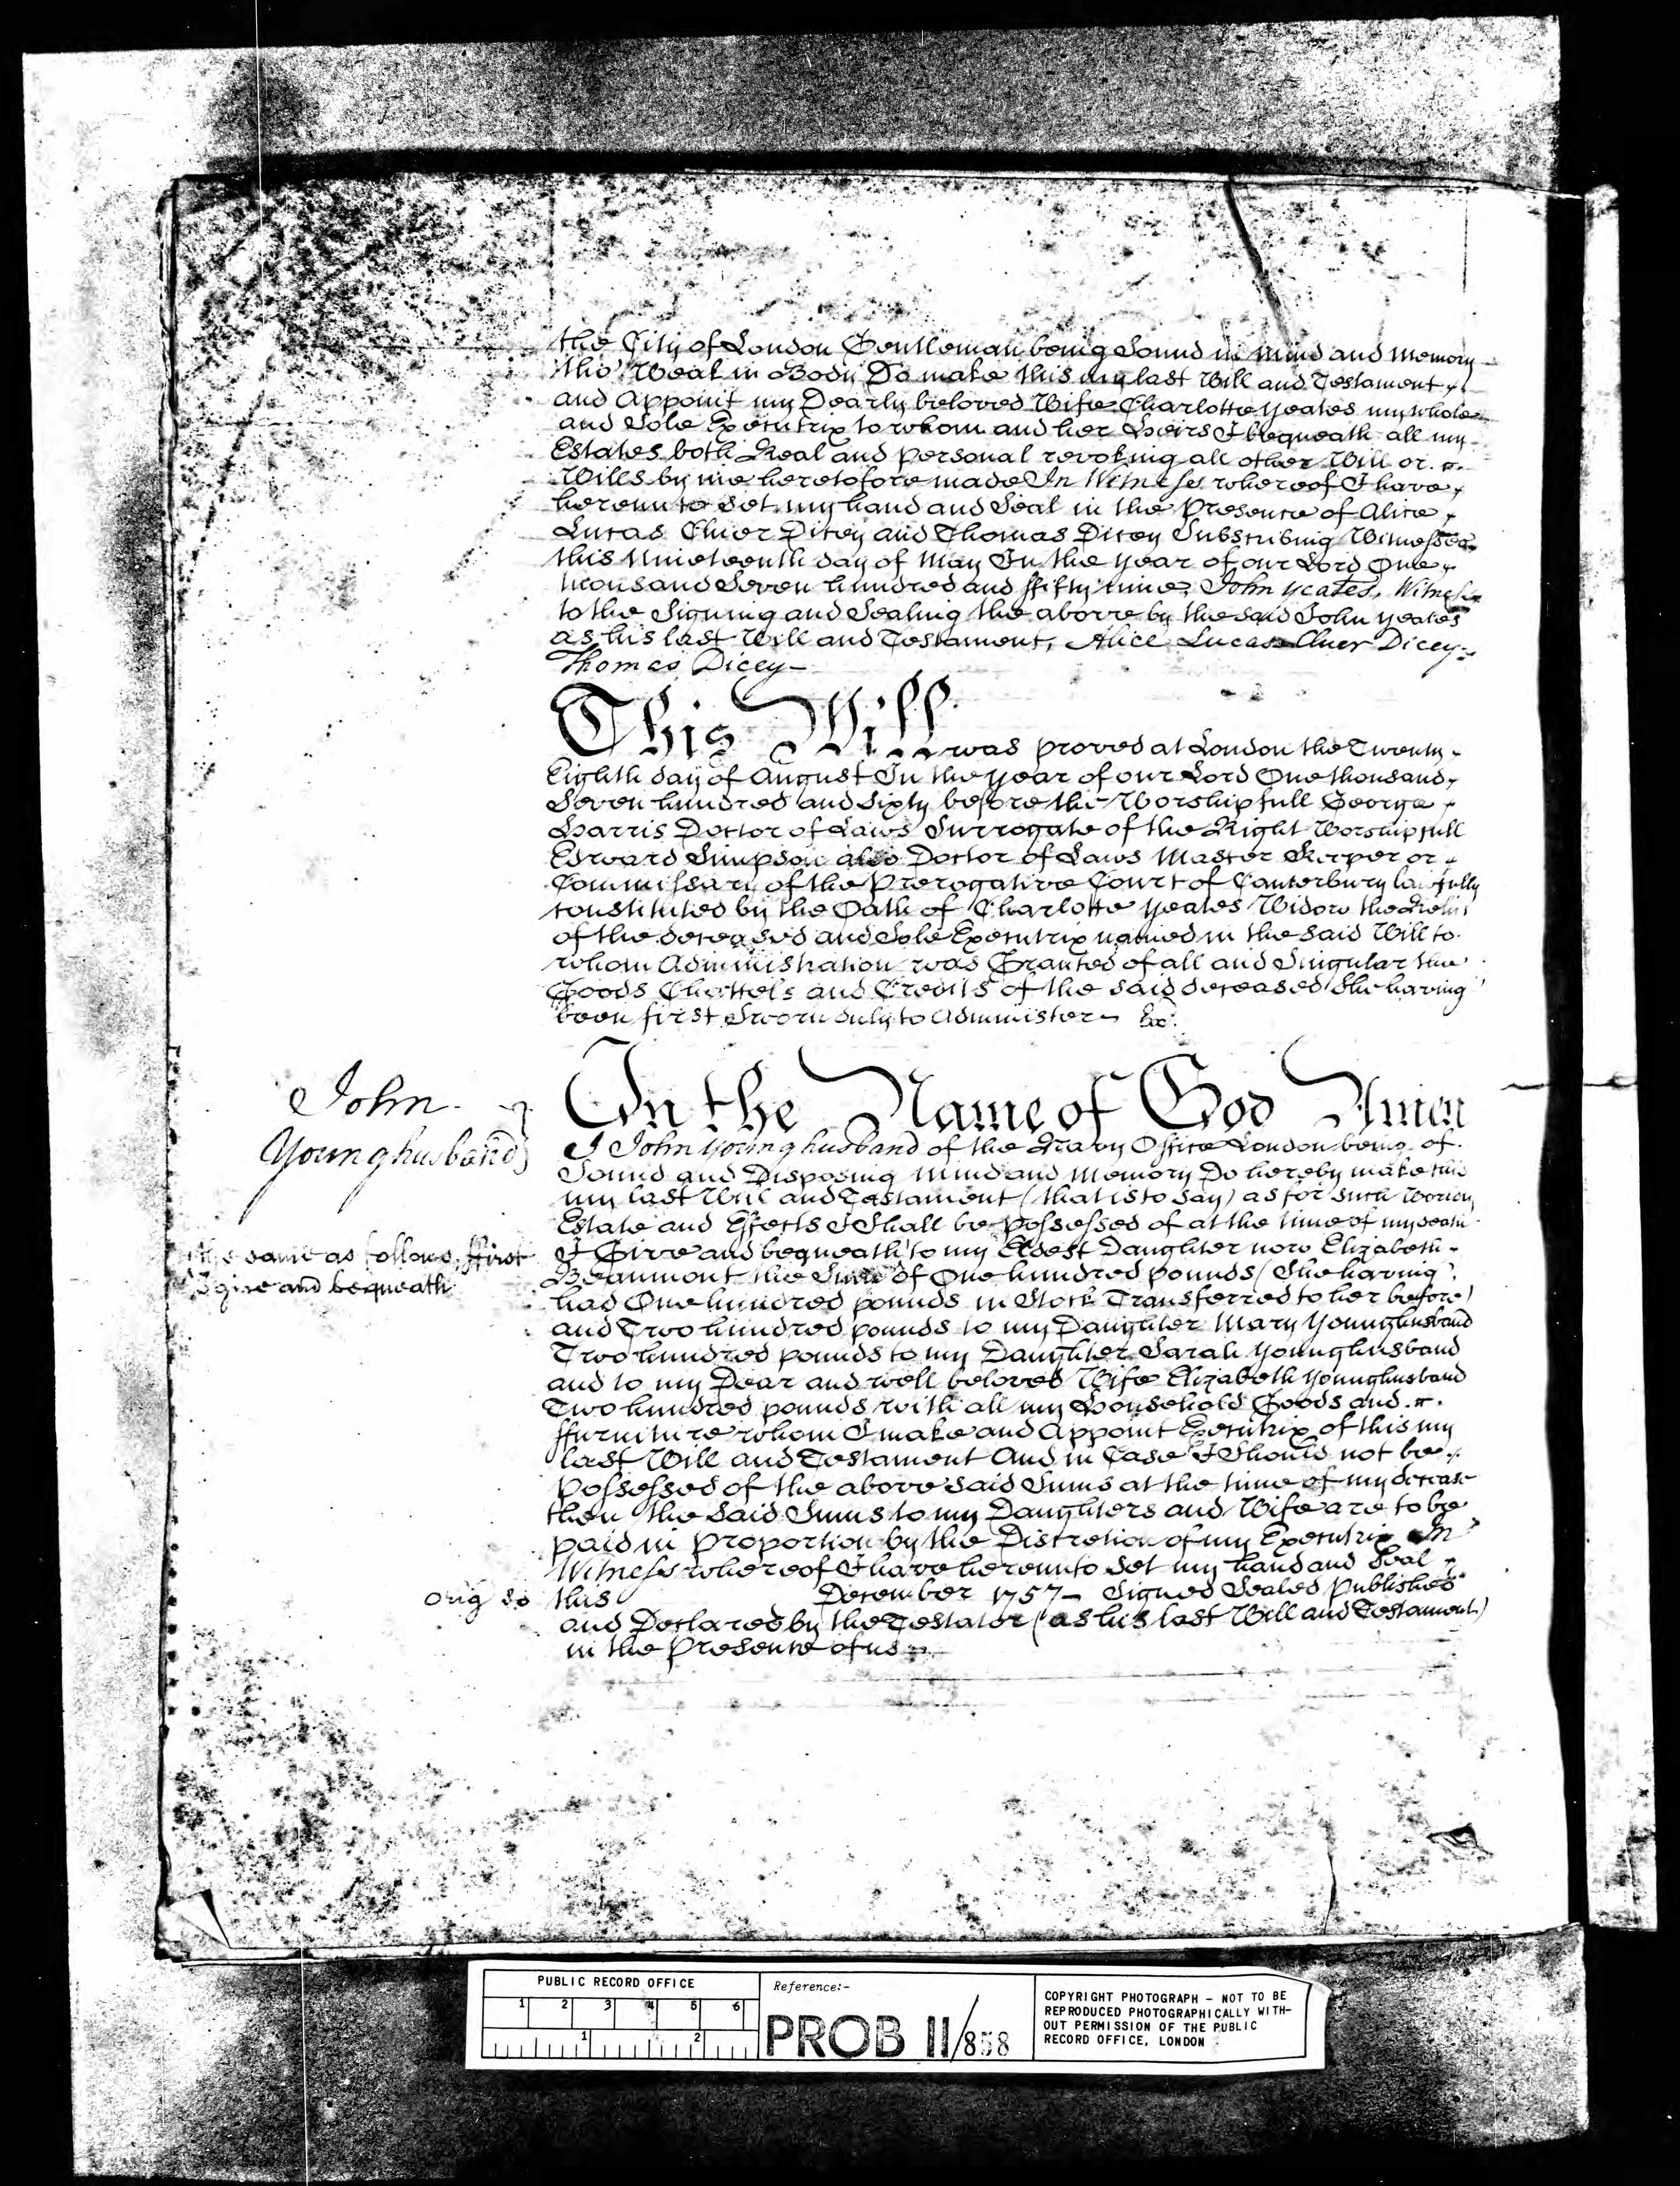 the City of London Gentleman being Sound in Mind and Memory
tho' Weak in Body Do make this my last Will and Testament
and Appoint my Dearly beloved Wife Charlotte Yeates my whole
and Sole Executrix to whom and her Heirs I bequeath all my
Estates both Real and personal revoking all other Will or
Wills by me heretofore made In Witness whereof I have
hereunto Set my hand and Seal in the Presence of Alice
Lucas Cluer Dicey and Thomas Dicey Subscribing Witnesses
this Nineteenth day of May In the Year of our Lord One
thousand Seven hundred and ffifty nine. John Yeates. Witness
to the Signing and Sealing the above by the said John Yeates
as his last Will and Testament, Alice Lucas Cluer Dicey
Thomas Dicey
This Will was proved at London the Twenty
Eighth day of August In the Year of our Lord One thousand
Seven hundred and Sixty before the Worshipfull George
Harris Doctor of Laws Surrogate of the Right Worshipfull
Edward Simpson also Doctor of Laws Master Keeper or
Commissary of the Prerogative Court of Canterbury lawfully
constituted by the Oath of Charlotte Yeates Widow the Relict
of the deceased and Sole Executrix named in the said Will to
whom Administration was Granted of all and Singular the
Goods Chattels and Credits of the said deceased She having
been first Sworn duly to Administer Ex.
John
Younghusband
In the Name of God Amen
I John Younghusband of the Navy Office London being of
Sound and Disposing Mind and Memory Do hereby make this
my last Will and Testament (that is to say) as for such Worldly
Estate and Effects I Shall be possessed of at the time of my death
the same as follows, ffirst
I give and bequeath
I Give and bequeath to my Eldest Daughter now Elizabeth
Beaumont the Sum of One hundred pounds (She having
had One hundred pounds in Stock Transferred to her before)
and Two hundred pounds to my Daughter Mary Younghusband
Two hundred pounds to my Daughter Sarah Younghusband
and to my Dear and well beloved Wife Elizabeth Younghusband
Two hundred pounds with all my Household Goods and
ffurniture whom I make and Appoint Executrix of this my
last Will and Testament And in Case I Should not be
Possessed of the above said Sums at the time of my decease
then the said Sums to my Daughters and Wife are to be
paid in Proportion by the Discretion of my Executrix In
Witness whereof I have hereunto Set my hand and Seal
Orig so
this December 1757 Signed Sealed Published
and Declared by the Testator (as his last Will and Testament)
in the Presence of us
PUBLIC RECORD OFFICE
1 2 3 4 5 6
1 2
Reference:-
PROB 11/858
COPYRIGHT PHOTOGRAPH - NOT TO BE
REPRODUCED PHOTOGRAPHICALLY WITH-
OUT PERMISSION OF THE PUBLIC
RECORD OFFICE, LONDON